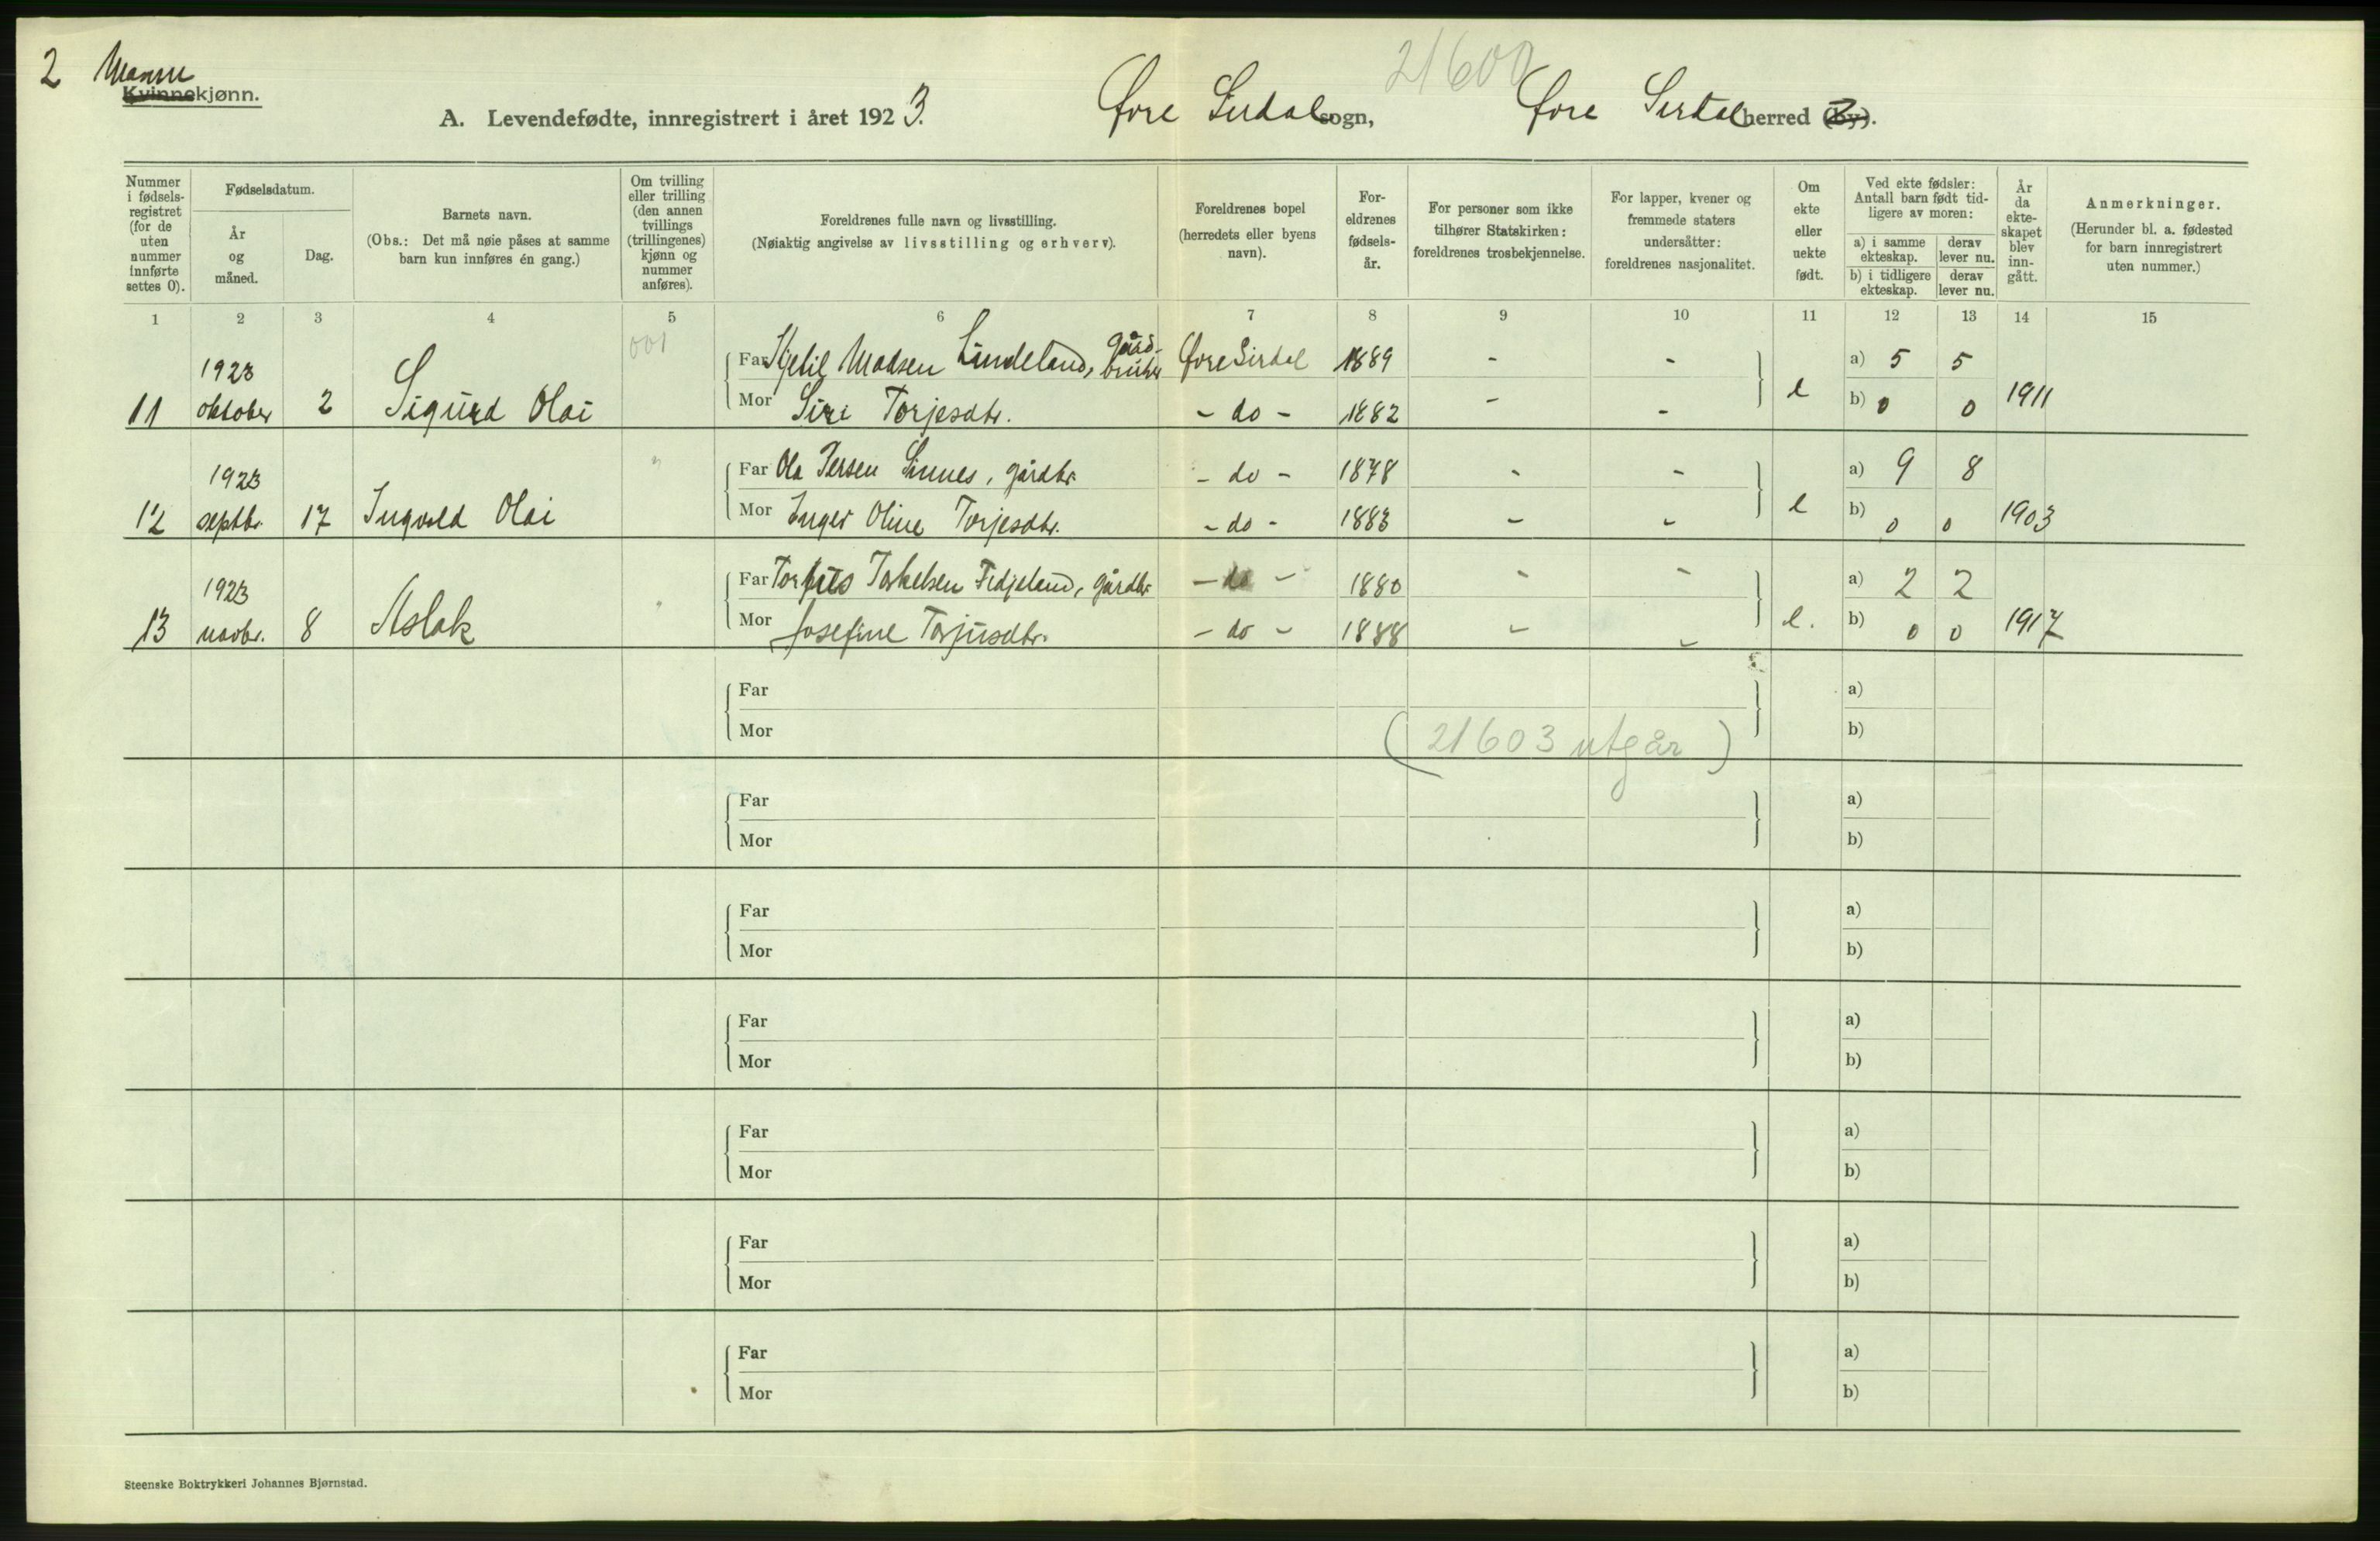 2 Manns
Kvinnekjønn.
21600
A. Levendefødte, innregistrert i året 1923. Øvre Sirdal sogn, Øvre Sirdal herred (by).
Nummer i fødselsregistret (for de uten nummer innførte settes 0).
Fødselsdatum.
År og måned.
Dag.
Barnets navn.
(Obs.: Det må nøie påses at samme barn kun innføres én gang.)
Om tvilling eller trilling (den annen tvillings (trillingenes) kjønn og nummer anføres).
Foreldrenes fulle navn og livsstilling.
(Nøiaktig angivelse av livsstilling og erhverv).
Foreldrenes bopel (herredets eller byens navn).
Foreldrenes fødselsår.
For personer som ikke tilhører Statskirken: foreldrenes trosbekjennelse.
For lapper, kvener og fremmede staters undersåtter: foreldrenes nasjonalitet.
Om ekte eller uekte født.
Ved ekte fødsler: Antall barn født tidligere av moren:
a) i samme ekteskap. derav lever nu.
b) i tidligere ekteskap. derav lever nu.
År da ekteskapet blev inngått.
Anmerkninger.
(Herunder bl. a. fødested for barn innregistrert uten nummer.)
1 2 3 4 5 6 7 8 9 10 11 12 13 14 15
001
11 1923 oktober 2 Sigurd Olai
Far Kjetil Madsen Lindeland, gårdbruker Øvre Sirdal 1889 - - a) 5 5
Mor Siri Torjesdtr. - do - 1882 - - e b) 0 0 1911
12 1923 septbr. 17 Ingvald Olai
Far Ola Persen Sinnes, gårdbr. - do - 1878 - - a) 9 8
Mor Inger Oline Torjesdtr. - do - 1883 - - e b) 0 0 1903
13 1923 novbr. 8 Aslak
Far Torkelsen Fidjeland, gårdbr. - do - 1880 - - a) 2 2
Mor Josefine Torjusdtr. - do - 1888 - - e. b) 0 0 1917
Far a)
Mor b)
(21603 utgår)
Far a)
Mor b)
Far a)
Mor b)
Far a)
Mor b)
Far a)
Mor b)
Far a)
Mor b)
Far a)
Mor b)
Steenske Boktrykkeri Johannes Bjørnstad.